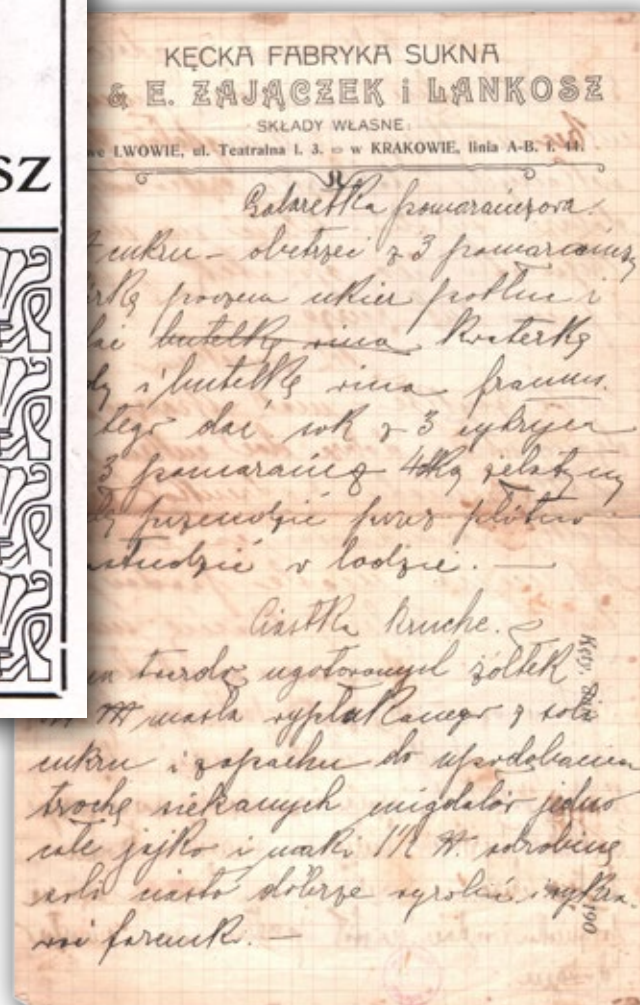 SZ
KĘCKA FABRYKA SUKNA
& E. ZAJĄCZEK i LANKOSZ
SKŁADY WŁASNE:
we LWOWIE, ul. Teatralna l. 3. w KRAKOWIE, linia A-B. l. 44.
Galaretka pomarańczowa.
cukru – obetrzeć z 3 pomarańczy
cukier
butelkę wina kwaterkę
i butelkę wina
tego dać sok z 3 cytryn
3 pomarańcz 4dkg żelatyny
przez płótno
w lodzie. —
Ciastka kruche.
twardo ugotowanych żółtek
masła wypłukanego z soli
cukru i zapachu do upodobania
trochę siekanych migdałów jedno
całe jajko i mąki 1½ odrobinę
soli ciasto dobrze wyrobić i wykra-
foremk. —
Kęty, dnia
190